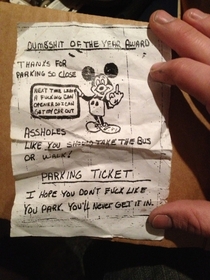 DUMBSHIT OF THE YEAR AWARD
THANKS FOR
PARKING SO CLOSE
NEXT TIME LEAVE
A FUCKING CAN
OPENER SO I CAN
GET MY CAR OUT
ASSHOLES
LIKE YOU SHOULD TAKE THE BUS
OR WALK!
PARKING TICKET
I HOPE YOU DON'T FUCK LIKE
YOU PARK. YOU'LL NEVER GET IT IN.